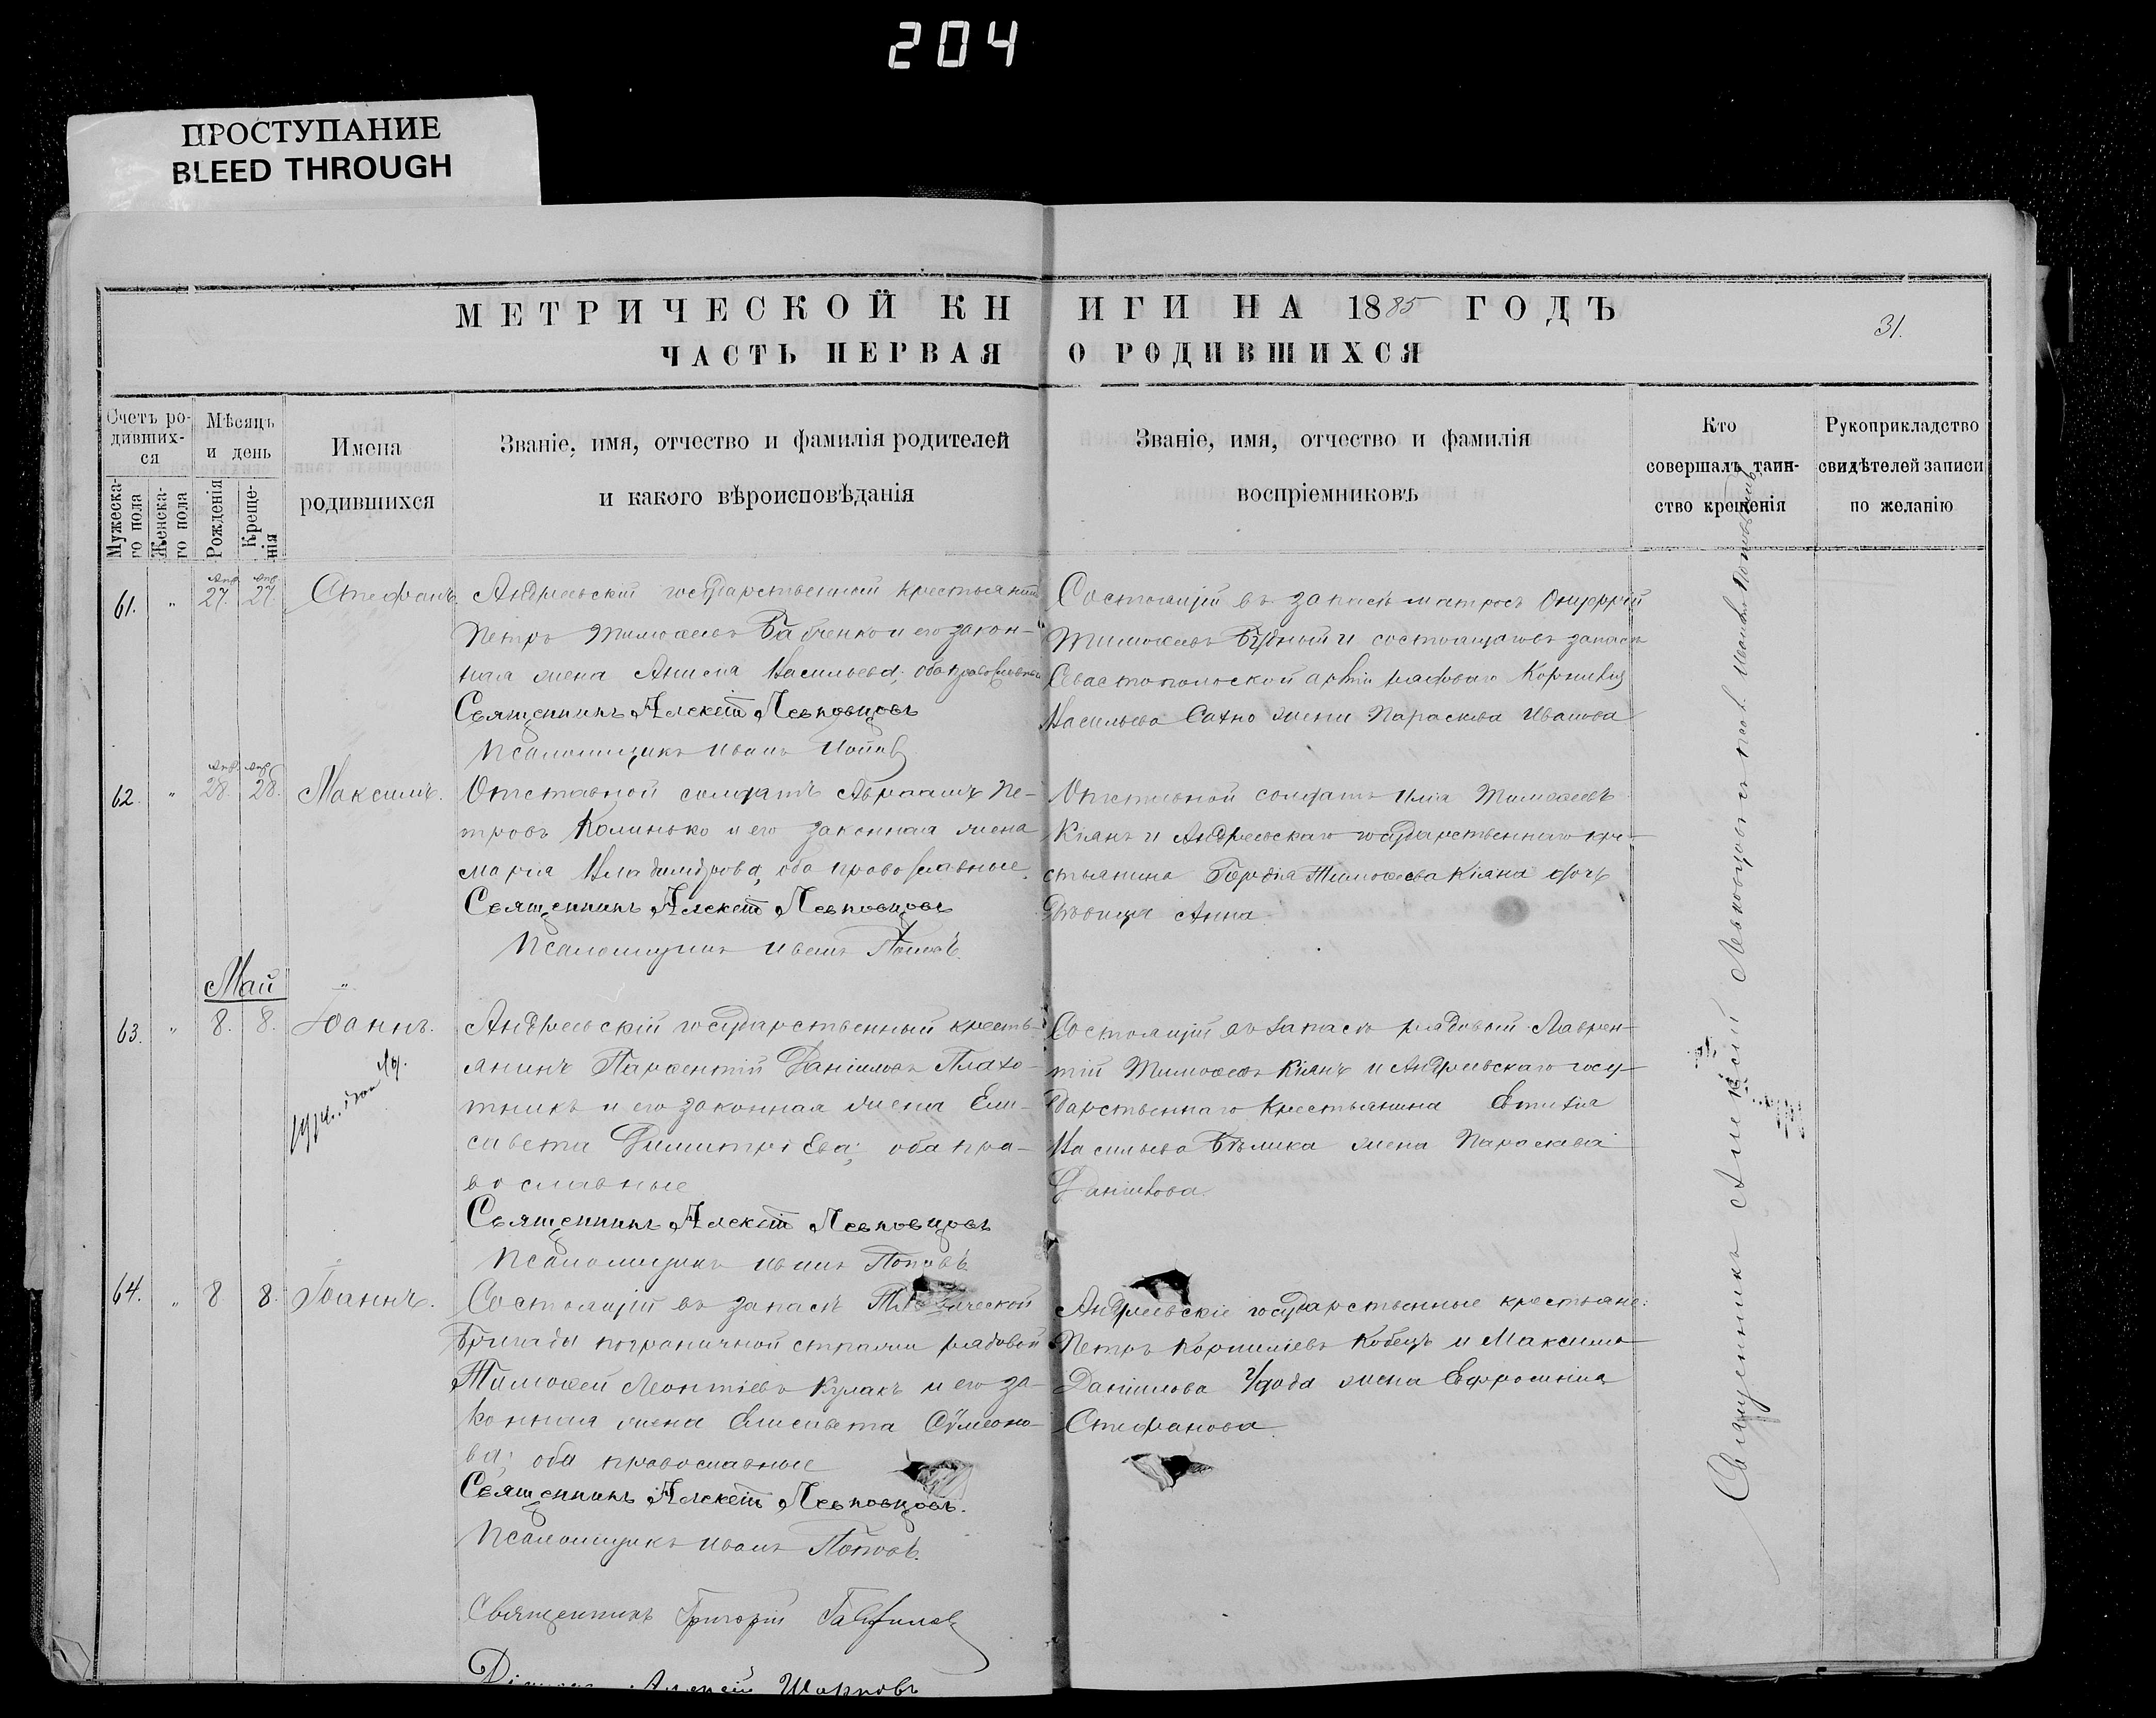 204
ПРОСТУПАНИЕ
BLEED THROUGH
МЕТРИЧЕСКОЙ КНИГИ НА 1885 ГОДЪ
31.
ЧАСТЬ ПЕРВАЯ О РОДИВШИХСЯ
Счетъ ро-
дивших-
ся
Мужеска-
го пола
Женска-
го пола
Мѣсяцъ
и день
Рожденія
Креще-
нія
Имена
родившихся
Званіе, имя, отчество и фамилія родителей
и какого вѣроисповѣданія
Званіе, имя, отчество и фамилія
воспріемниковъ
Кто
совершалъ таин-
ство крещенія
Рукоприкладство
свидѣтелей записи
по желанію
61. " Апр. 27. Апр. 27. Стефанъ.
Андреевскій государственный крестьянинъ
Петръ Тимоѳеевъ Бабченко и его закон-
ная жена Анисія Васильева; оба православные
Священникъ Алексѣй Левковцовъ
Псаломщикъ Иванъ Поповъ
Состоящій въ запасѣ матросъ
Тимоѳеевъ Бѣдный и состоящаго въ запасѣ
Севастопольской рядоваго Корнилія
Васильева Сахно жена Параскева Иванова
62. " Апр. 28. Апр. 28. Максимъ.
Отставной солдатъ Авраамъ Пе-
тровъ Калинько и его законная жена
Марія Владимірова, оба православные.
Священникъ Алексѣй Левковцовъ
Псаломщикъ Иванъ Поповъ.
Отставной солдатъ Илія Тимоѳеевъ
Кіянъ и Андреевскаго государственнаго кре-
стьянина Гордія Тимоѳеева Кіяна дочь
дѣвица Анна.
Май
63. " 8. 8. Іоаннъ.
Андреевскій государственный кресть-
янинъ Парѳентій Даніиловъ Плахо-
тникъ и его законная жена Ели-
савета Димитріева; оба пра-
вославные
Священникъ Алексѣй Левковцовъ
Псаломщикъ Иванъ Поповъ
Состоящій въ запасѣ рядовой Лаврен-
тій Тимоѳеевъ Кіянъ и Андреевскаго госу-
дарственнаго крестьянина Евтихія
Васильева Бѣлика жена Параскева
Даніилова.
64. " 8 8. Іоаннъ.
Состоящій въ запасѣ
Бригады пограничной стражи рядовой
Тимоѳей Леонтіевъ Кулакъ и его за-
конная жена Елисавета Сѵмеоно-
ва; оба православные
Священникъ Алексѣй Левковцовъ.
Псаломщикъ Иванъ Поповъ.
Андреевскіе государственные крестьяне:
Петръ Корниліевъ Кобецъ и Максима
Даніилова жена Евфросинія
Стефанова.
Священникъ Григорій
Алексѣй
Священникъ Алексѣй Левковцовъ и псал. Иванъ Поповъ